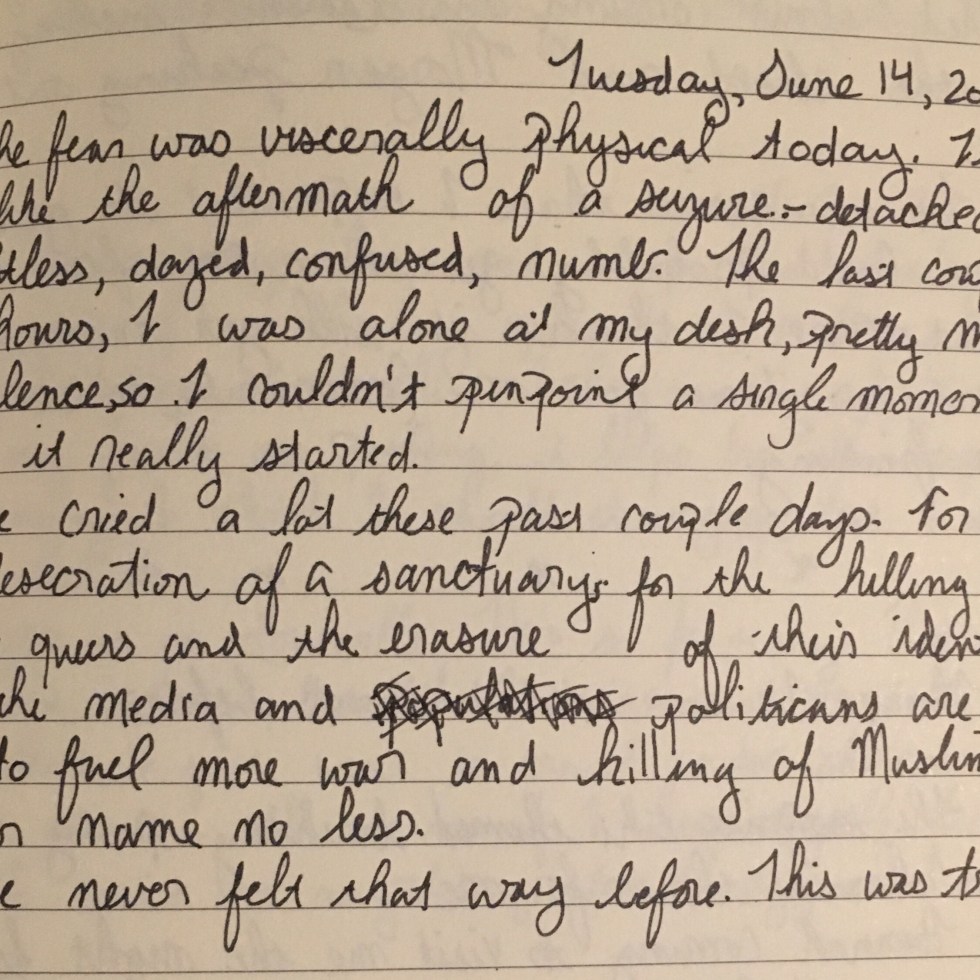 Tuesday, June 14, 20
he fear was viscerally physical today. I
like the aftermath of a seizure - detached
tless, dazed, confused, numb. The last cou
hours, I was alone at my desk, pretty m
lence, so I couldn't pinpoint a single momen
it really started.
e cried a lot these past couple days. For
esecration of a sanctuary, for the killing
queers and the erasure of their iden
the media and politicans are
to fuel more war and killing of Muslim
n name no less.
e never felt that way before. This was to